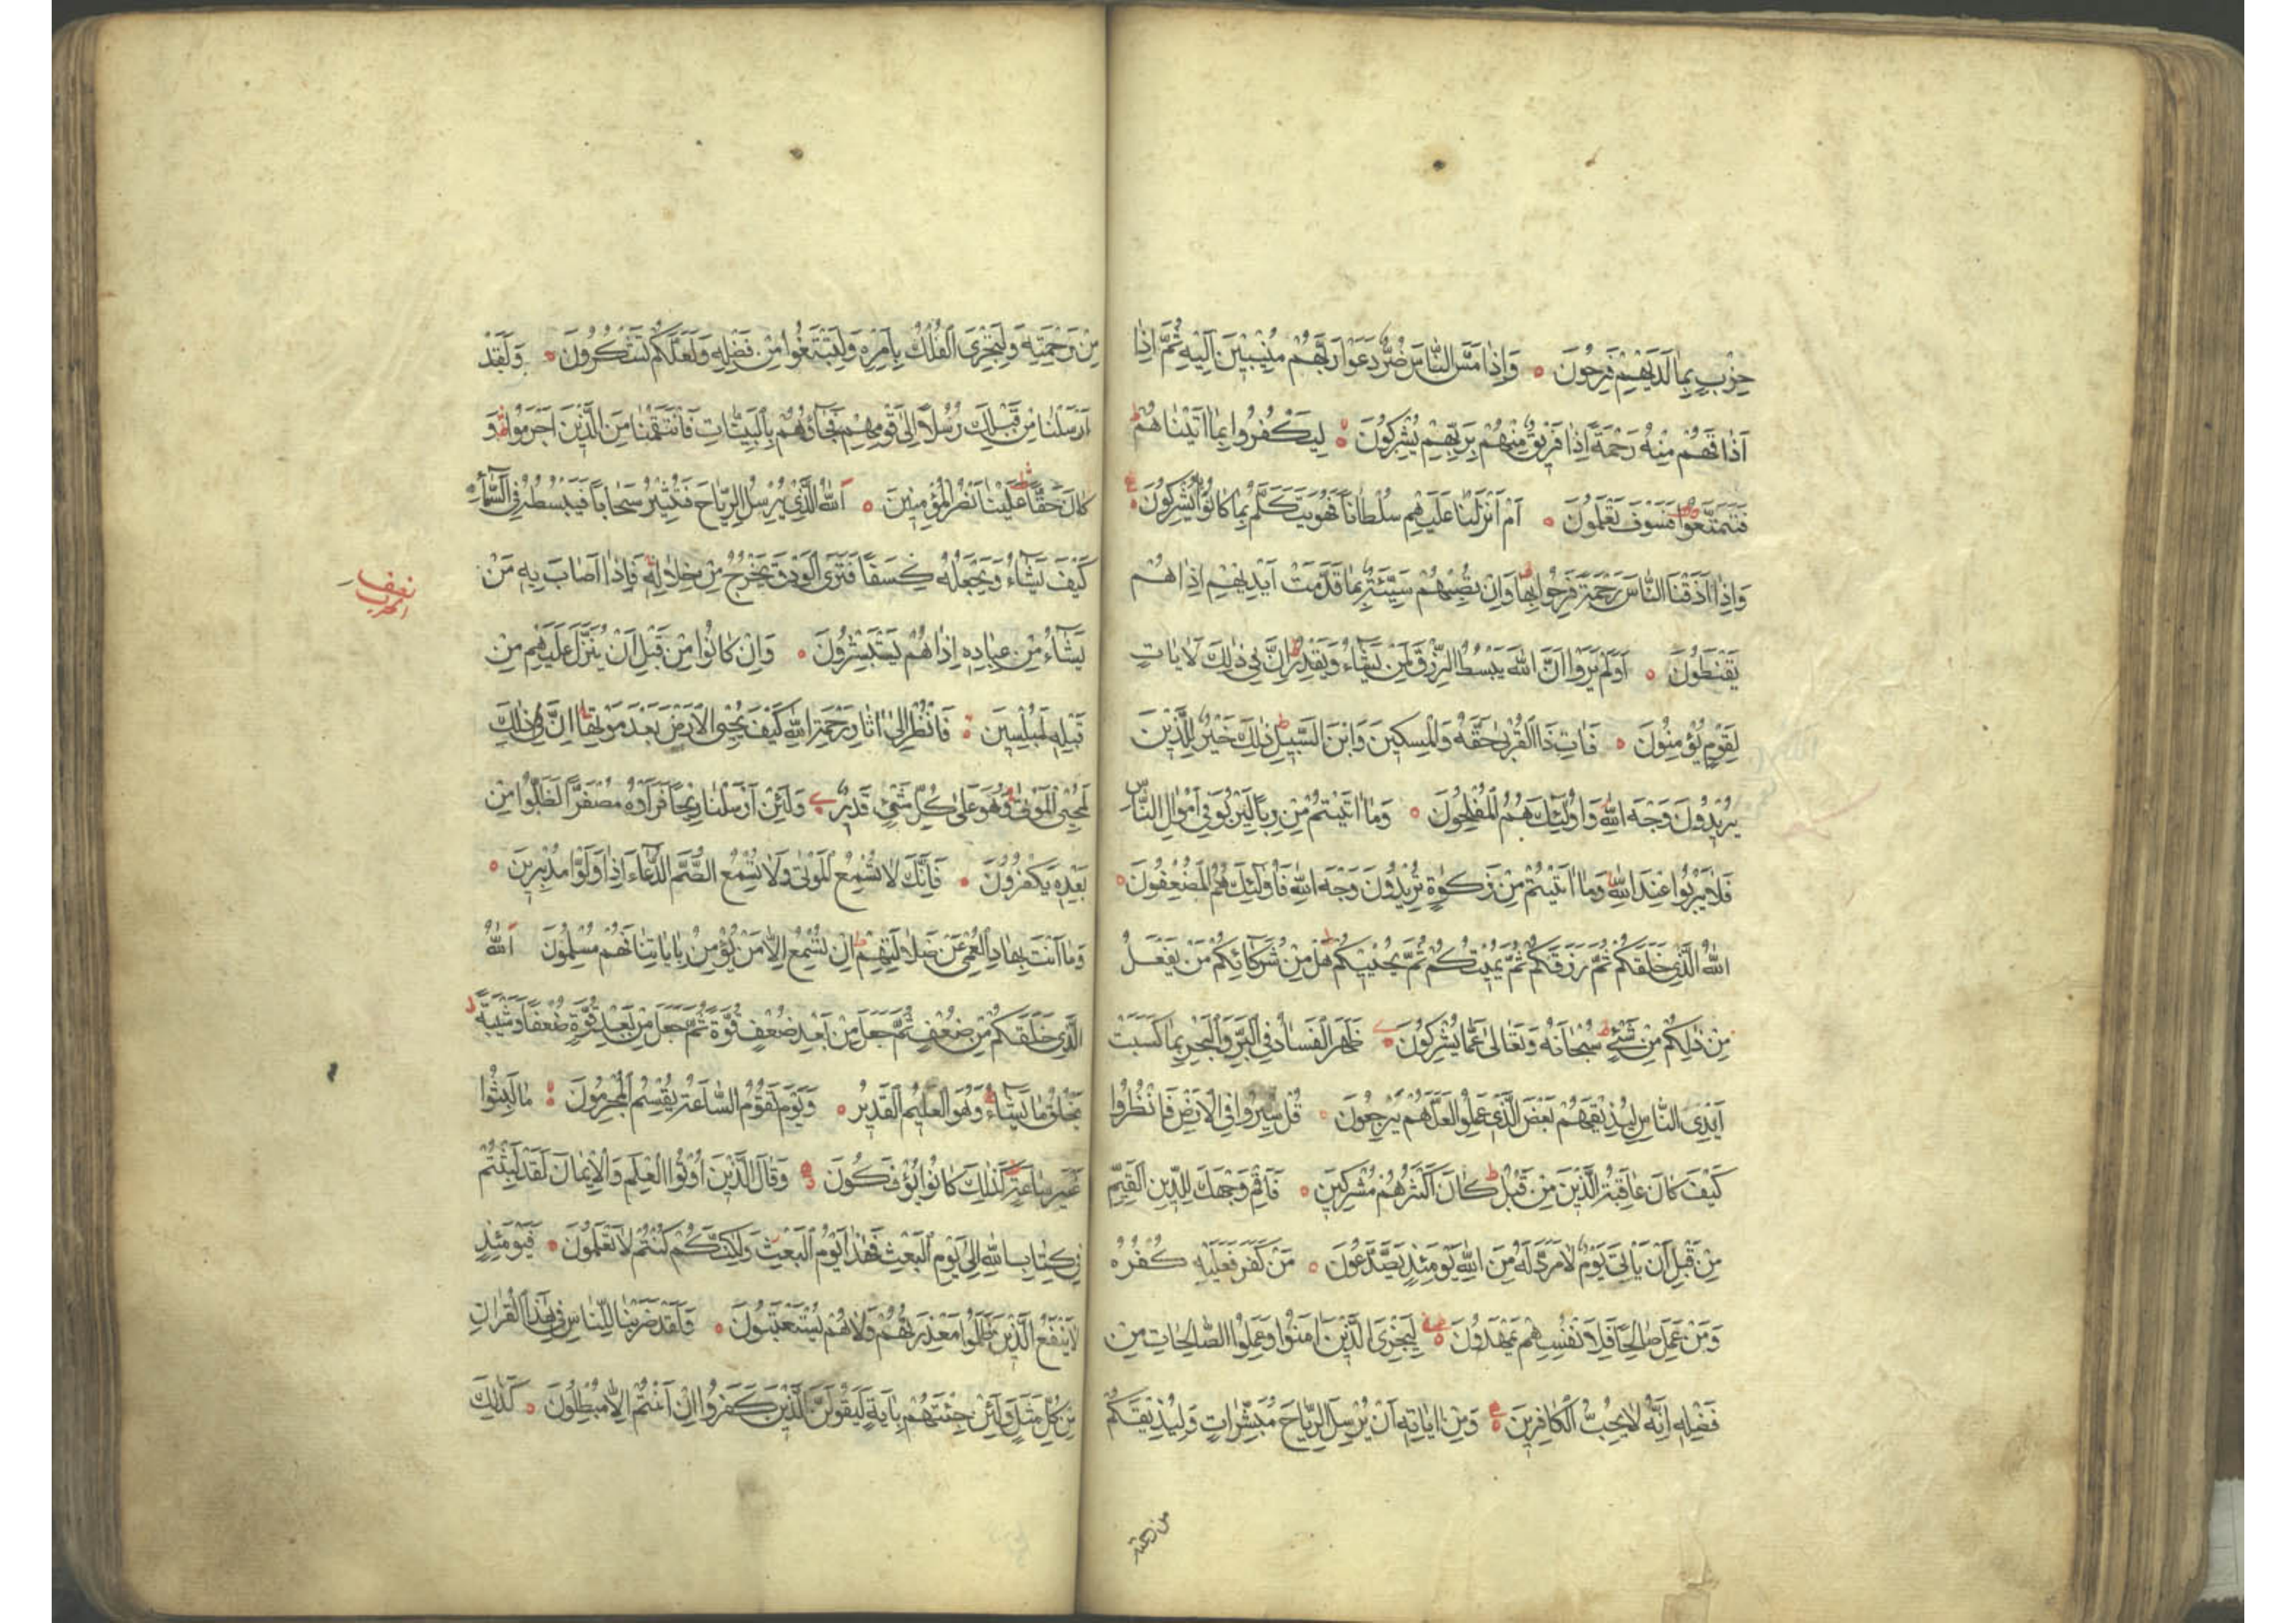 حِزْبٍ بِمَا لَدَيْهِمْ فَرِحُونَ ۝ وَاِذَا مَسَّ النَّاسَ ضُرٌّ دَعَوْا رَبَّهُمْ مُنِيبِينَ اِلَيْهِ ثُمَّ اِذَا
اَذَاقَهُمْ مِنْهُ رَحْمَةً اِذَا فَرِيقٌ مِنْهُمْ بِرَبِّهِمْ يُشْرِكُونَ ۝ لِيَكْفُرُوا بِمَا اٰتَيْنَاهُمْ ط
فَتَمَتَّعُوا فَسَوْفَ تَعْلَمُونَ ۝ اَمْ اَنْزَلْنَا عَلَيْهِمْ سُلْطَانًا فَهُوَ يَتَكَلَّمُ بِمَا كَانُوا بِهِ يُشْرِكُونَ ۝
وَاِذَا اَذَقْنَا النَّاسَ رَحْمَةً فَرِحُوا بِهَا ط وَاِنْ تُصِبْهُمْ سَيِّئَةٌ بِمَا قَدَّمَتْ اَيْدِيهِمْ اِذَا هُمْ
يَقْنَطُونَ ۝ اَوَلَمْ يَرَوْا اَنَّ اللّٰهَ يَبْسُطُ الرِّزْقَ لِمَنْ يَشَاءُ وَيَقْدِرُ ط اِنَّ فِي ذٰلِكَ لَاٰيَاتٍ
لِقَوْمٍ يُؤْمِنُونَ ۝ فَاٰتِ ذَا الْقُرْبٰى حَقَّهُ وَالْمِسْكِينَ وَابْنَ السَّبِيلِ ط ذٰلِكَ خَيْرٌ لِلَّذِينَ
يُرِيدُونَ وَجْهَ اللّٰهِ وَاُولٰئِكَ هُمُ الْمُفْلِحُونَ ۝ وَمَا اٰتَيْتُمْ مِنْ رِبًا لِيَرْبُوَ فِي اَمْوَالِ النَّاسِ
فَلَا يَرْبُوا عِنْدَ اللّٰهِ وَمَا اٰتَيْتُمْ مِنْ زَكٰوةٍ تُرِيدُونَ وَجْهَ اللّٰهِ فَاُولٰئِكَ هُمُ الْمُضْعِفُونَ ۝
اَللّٰهُ الَّذِي خَلَقَكُمْ ثُمَّ رَزَقَكُمْ ثُمَّ يُمِيتُكُمْ ثُمَّ يُحْيِيكُمْ ط هَلْ مِنْ شُرَكَائِكُمْ مَنْ يَفْعَلُ
مِنْ ذٰلِكُمْ مِنْ شَيْءٍ ط سُبْحَانَهُ وَتَعَالٰى عَمَّا يُشْرِكُونَ ۝ ظَهَرَ الْفَسَادُ فِي الْبَرِّ وَالْبَحْرِ بِمَا كَسَبَتْ
اَيْدِى النَّاسِ لِيُذِيقَهُمْ بَعْضَ الَّذِي عَمِلُوا لَعَلَّهُمْ يَرْجِعُونَ ۝ قُلْ سِيرُوا فِي الْاَرْضِ فَانْظُرُوا
كَيْفَ كَانَ عَاقِبَةُ الَّذِينَ مِنْ قَبْلُ ط كَانَ اَكْثَرُهُمْ مُشْرِكِينَ ۝ فَاَقِمْ وَجْهَكَ لِلدِّينِ الْقَيِّمِ
مِنْ قَبْلِ اَنْ يَاْتِيَ يَوْمٌ لَا مَرَدَّ لَهُ مِنَ اللّٰهِ يَوْمَئِذٍ يَصَّدَّعُونَ ۝ مَنْ كَفَرَ فَعَلَيْهِ كُفْرُهُ
وَمَنْ عَمِلَ صَالِحًا فَلِاَنْفُسِهِمْ يَمْهَدُونَ ۝ لِيَجْزِيَ الَّذِينَ اٰمَنُوا وَعَمِلُوا الصَّالِحَاتِ مِنْ
فَضْلِهِ اِنَّهُ لَا يُحِبُّ الْكَافِرِينَ ۝ وَمِنْ اٰيَاتِهِ اَنْ يُرْسِلَ الرِّيَاحَ مُبَشِّرَاتٍ وَلِيُذِيقَكُمْ
من رحمته
مِنْ رَحْمَتِهِ وَلِتَجْرِيَ الْفُلْكُ بِاَمْرِهِ وَلِتَبْتَغُوا مِنْ فَضْلِهِ وَلَعَلَّكُمْ تَشْكُرُونَ ۝ وَلَقَدْ
اَرْسَلْنَا مِنْ قَبْلِكَ رُسُلًا اِلٰى قَوْمِهِمْ فَجَاؤُهُمْ بِالْبَيِّنَاتِ فَانْتَقَمْنَا مِنَ الَّذِينَ اَجْرَمُوا ط وَ
كَانَ حَقًّا عَلَيْنَا نَصْرُ الْمُؤْمِنِينَ ۝ اَللّٰهُ الَّذِي يُرْسِلُ الرِّيَاحَ فَتُثِيرُ سَحَابًا فَيَبْسُطُهُ فِي السَّمَاءِ
كَيْفَ يَشَاءُ وَيَجْعَلُهُ كِسَفًا فَتَرَى الْوَدْقَ يَخْرُجُ مِنْ خِلَالِهِ فَاِذَا اَصَابَ بِهِ مَنْ
نصف الحزب
يَشَاءُ مِنْ عِبَادِهِ اِذَا هُمْ يَسْتَبْشِرُونَ ۝ وَاِنْ كَانُوا مِنْ قَبْلِ اَنْ يُنَزَّلَ عَلَيْهِمْ مِنْ
قَبْلِهِ لَمُبْلِسِينَ ۝ فَانْظُرْ اِلٰى اٰثَارِ رَحْمَةِ اللّٰهِ كَيْفَ يُحْيِي الْاَرْضَ بَعْدَ مَوْتِهَا ط اِنَّ ذٰلِكَ
لَمُحْيِي الْمَوْتٰى وَهُوَ عَلٰى كُلِّ شَيْءٍ قَدِيرٌ ۝ وَلَئِنْ اَرْسَلْنَا رِيحًا فَرَاَوْهُ مُصْفَرًّا لَظَلُّوا مِنْ
بَعْدِهِ يَكْفُرُونَ ۝ فَاِنَّكَ لَا تُسْمِعُ الْمَوْتٰى وَلَا تُسْمِعُ الصُّمَّ الدُّعَاءَ اِذَا وَلَّوْا مُدْبِرِينَ ۝
وَمَا اَنْتَ بِهَادِ الْعُمْيِ عَنْ ضَلَالَتِهِمْ ط اِنْ تُسْمِعُ اِلَّا مَنْ يُؤْمِنُ بِاٰيَاتِنَا فَهُمْ مُسْلِمُونَ اَللّٰهُ
الَّذِي خَلَقَكُمْ مِنْ ضُعْفٍ ثُمَّ جَعَلَ مِنْ بَعْدِ ضُعْفٍ قُوَّةً ثُمَّ جَعَلَ مِنْ بَعْدِ قُوَّةٍ ضُعْفًا وَشَيْبَةً
يَخْلُقُ مَا يَشَاءُ وَهُوَ الْعَلِيمُ الْقَدِيرُ ۝ وَيَوْمَ تَقُومُ السَّاعَةُ يُقْسِمُ الْمُجْرِمُونَ ۝ مَا لَبِثُوا
غَيْرَ سَاعَةٍ ط كَذٰلِكَ كَانُوا يُؤْفَكُونَ ۝ وَقَالَ الَّذِينَ اُوتُوا الْعِلْمَ وَالْاِيمَانَ لَقَدْ لَبِثْتُمْ
فِي كِتَابِ اللّٰهِ اِلٰى يَوْمِ الْبَعْثِ فَهٰذَا يَوْمُ الْبَعْثِ وَلٰكِنَّكُمْ كُنْتُمْ لَا تَعْلَمُونَ ۝ فَيَوْمَئِذٍ
لَا يَنْفَعُ الَّذِينَ ظَلَمُوا مَعْذِرَتُهُمْ وَلَا هُمْ يُسْتَعْتَبُونَ ۝ وَلَقَدْ ضَرَبْنَا لِلنَّاسِ فِي هٰذَا الْقُرْاٰنِ
مِنْ كُلِّ مَثَلٍ وَلَئِنْ جِئْتَهُمْ بِاٰيَةٍ لَيَقُولَنَّ الَّذِينَ كَفَرُوا اِنْ اَنْتُمْ اِلَّا مُبْطِلُونَ ۝ كَذٰلِكَ